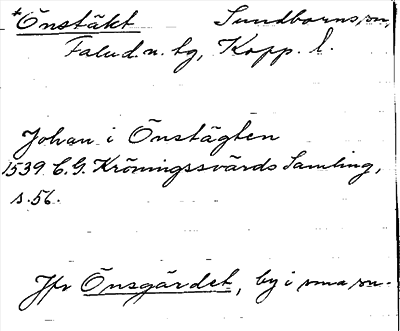 *Önstäkt Sundborns sn,
Falu d.n. tg, Kopp. l.
Johan i Önstägten
1539 C.G. Kröningssvärds Samling,
s. 56.
Jfr Önsgärdet, by i sma sn.